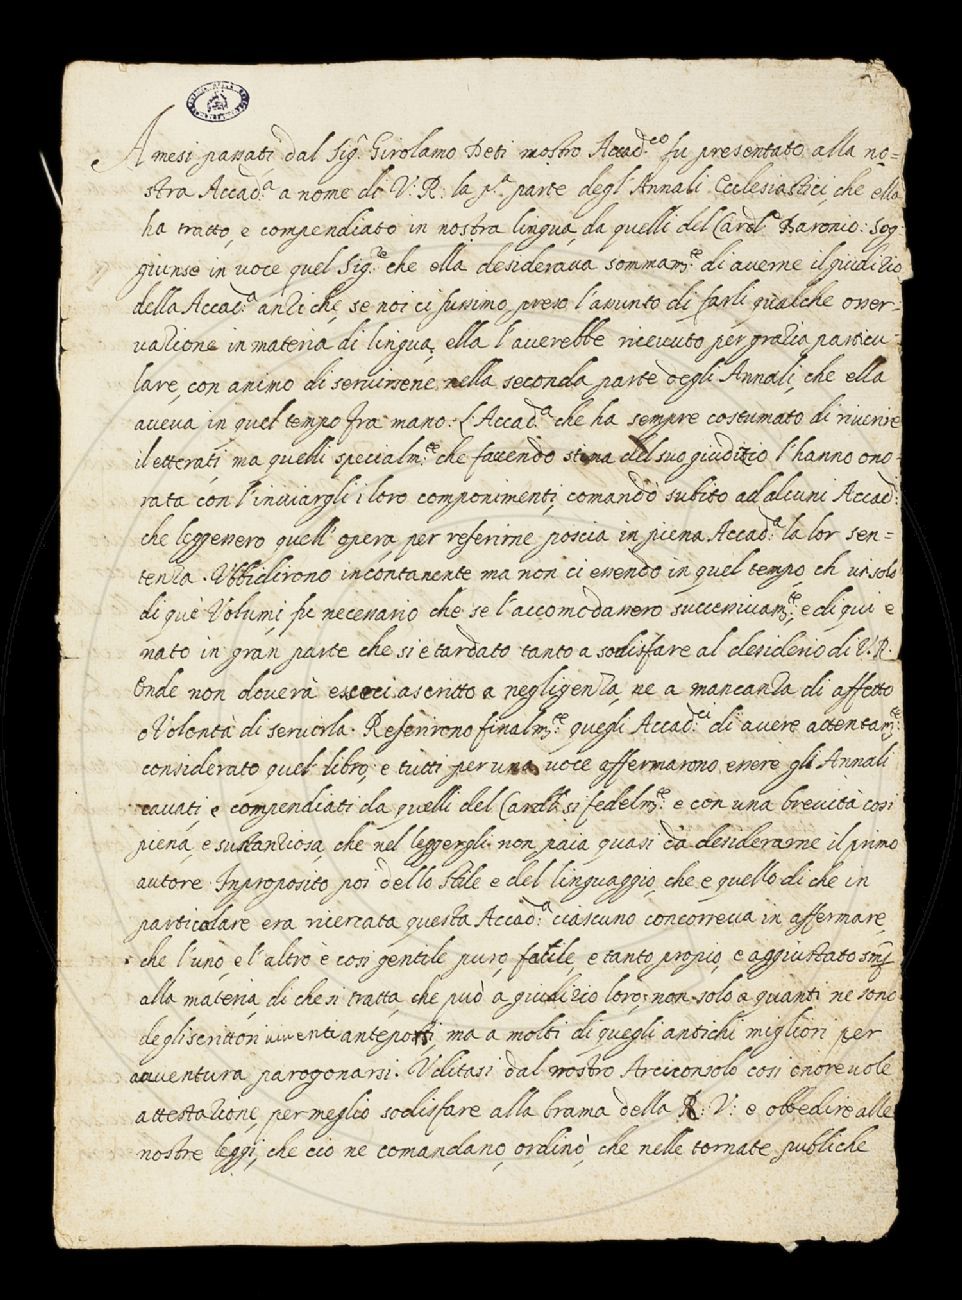 A mesi passati dal Sig.r Girolamo Deti nostro Accad.co fu presentato alla no=
stra Accad.a a nome di V: R: la p.a parte degl'Annali Ecclesiastici, che ella
ha tratto, e compendiato in nostra lingua da quelli del Card.le Baronio: Sog
giunse in voce quel Sig.re che ella desiderava sommam.te di averne il giudizio
della Accad.a anzi che, se noi ci fussimo preso l'assunto di farli qualche osser-
vazione in materia di lingua, ella l'averebbe ricevuto per grazia particu-
lare, con animo di servirsene nella seconda parte degli Annali, che ella
aveva in quel tempo fra mano. L'Accad.a che ha sempre costumato di riverire
i letterati ma quelli specialm.te che facendo stima del suo giudizio l'hanno ono-
rata con l'inviargli i loro componimenti, comandò subito ad alcuni Accad:
che leggessero quell'opera, per referirne poscia in piena Accad.a la lor sen=
tenza. Ubbidirono incontanente ma non ci essendo in quel tempo, ch'un solo
di que' Volumi, fu necessario che se l'accomodassero successivam.te, e di qui è
nato in gran parte che si è tardato tanto a sodisfare al desiderio di V.R.
Onde non doverà esserci ascritto a negligenza, ne a mancanza di affetto
o Volontà di servirla. Referirono finalm.te quegli Accad.ci di avere attentam.te
considerato quel libro, e tutti per una voce affermarono essere gli Annali
cavati, e compendiati da quelli del Card.le si fedelm.te e con una brevità così
piena, e sustanziosa, che nel leggergli non paia quasi da desiderarne il primo
autore. In proposito poi dello stile e del linguaggio, che è quello di che in
particolare era ricercata questa Accad.a ciascuno concorreva in affermare,
che l'uno, e l'altro è così gentile puro, facile, e tanto propio, e aggiustato
alla materia, di che si tratta, che può a giudizio loro, non solo a quanti ne sono
degli scrittori viventi anteporsi, ma a molti di quegli antichi migliori per
avventura paragonarsi. Uditasi dal nostro Arciconsolo così onorevole
attestazione, per meglio sodisfare alla brama della R: V: e obbedire alle
nostre leggi, che ciò ne comandano, ordinò, che nelle tornate publiche